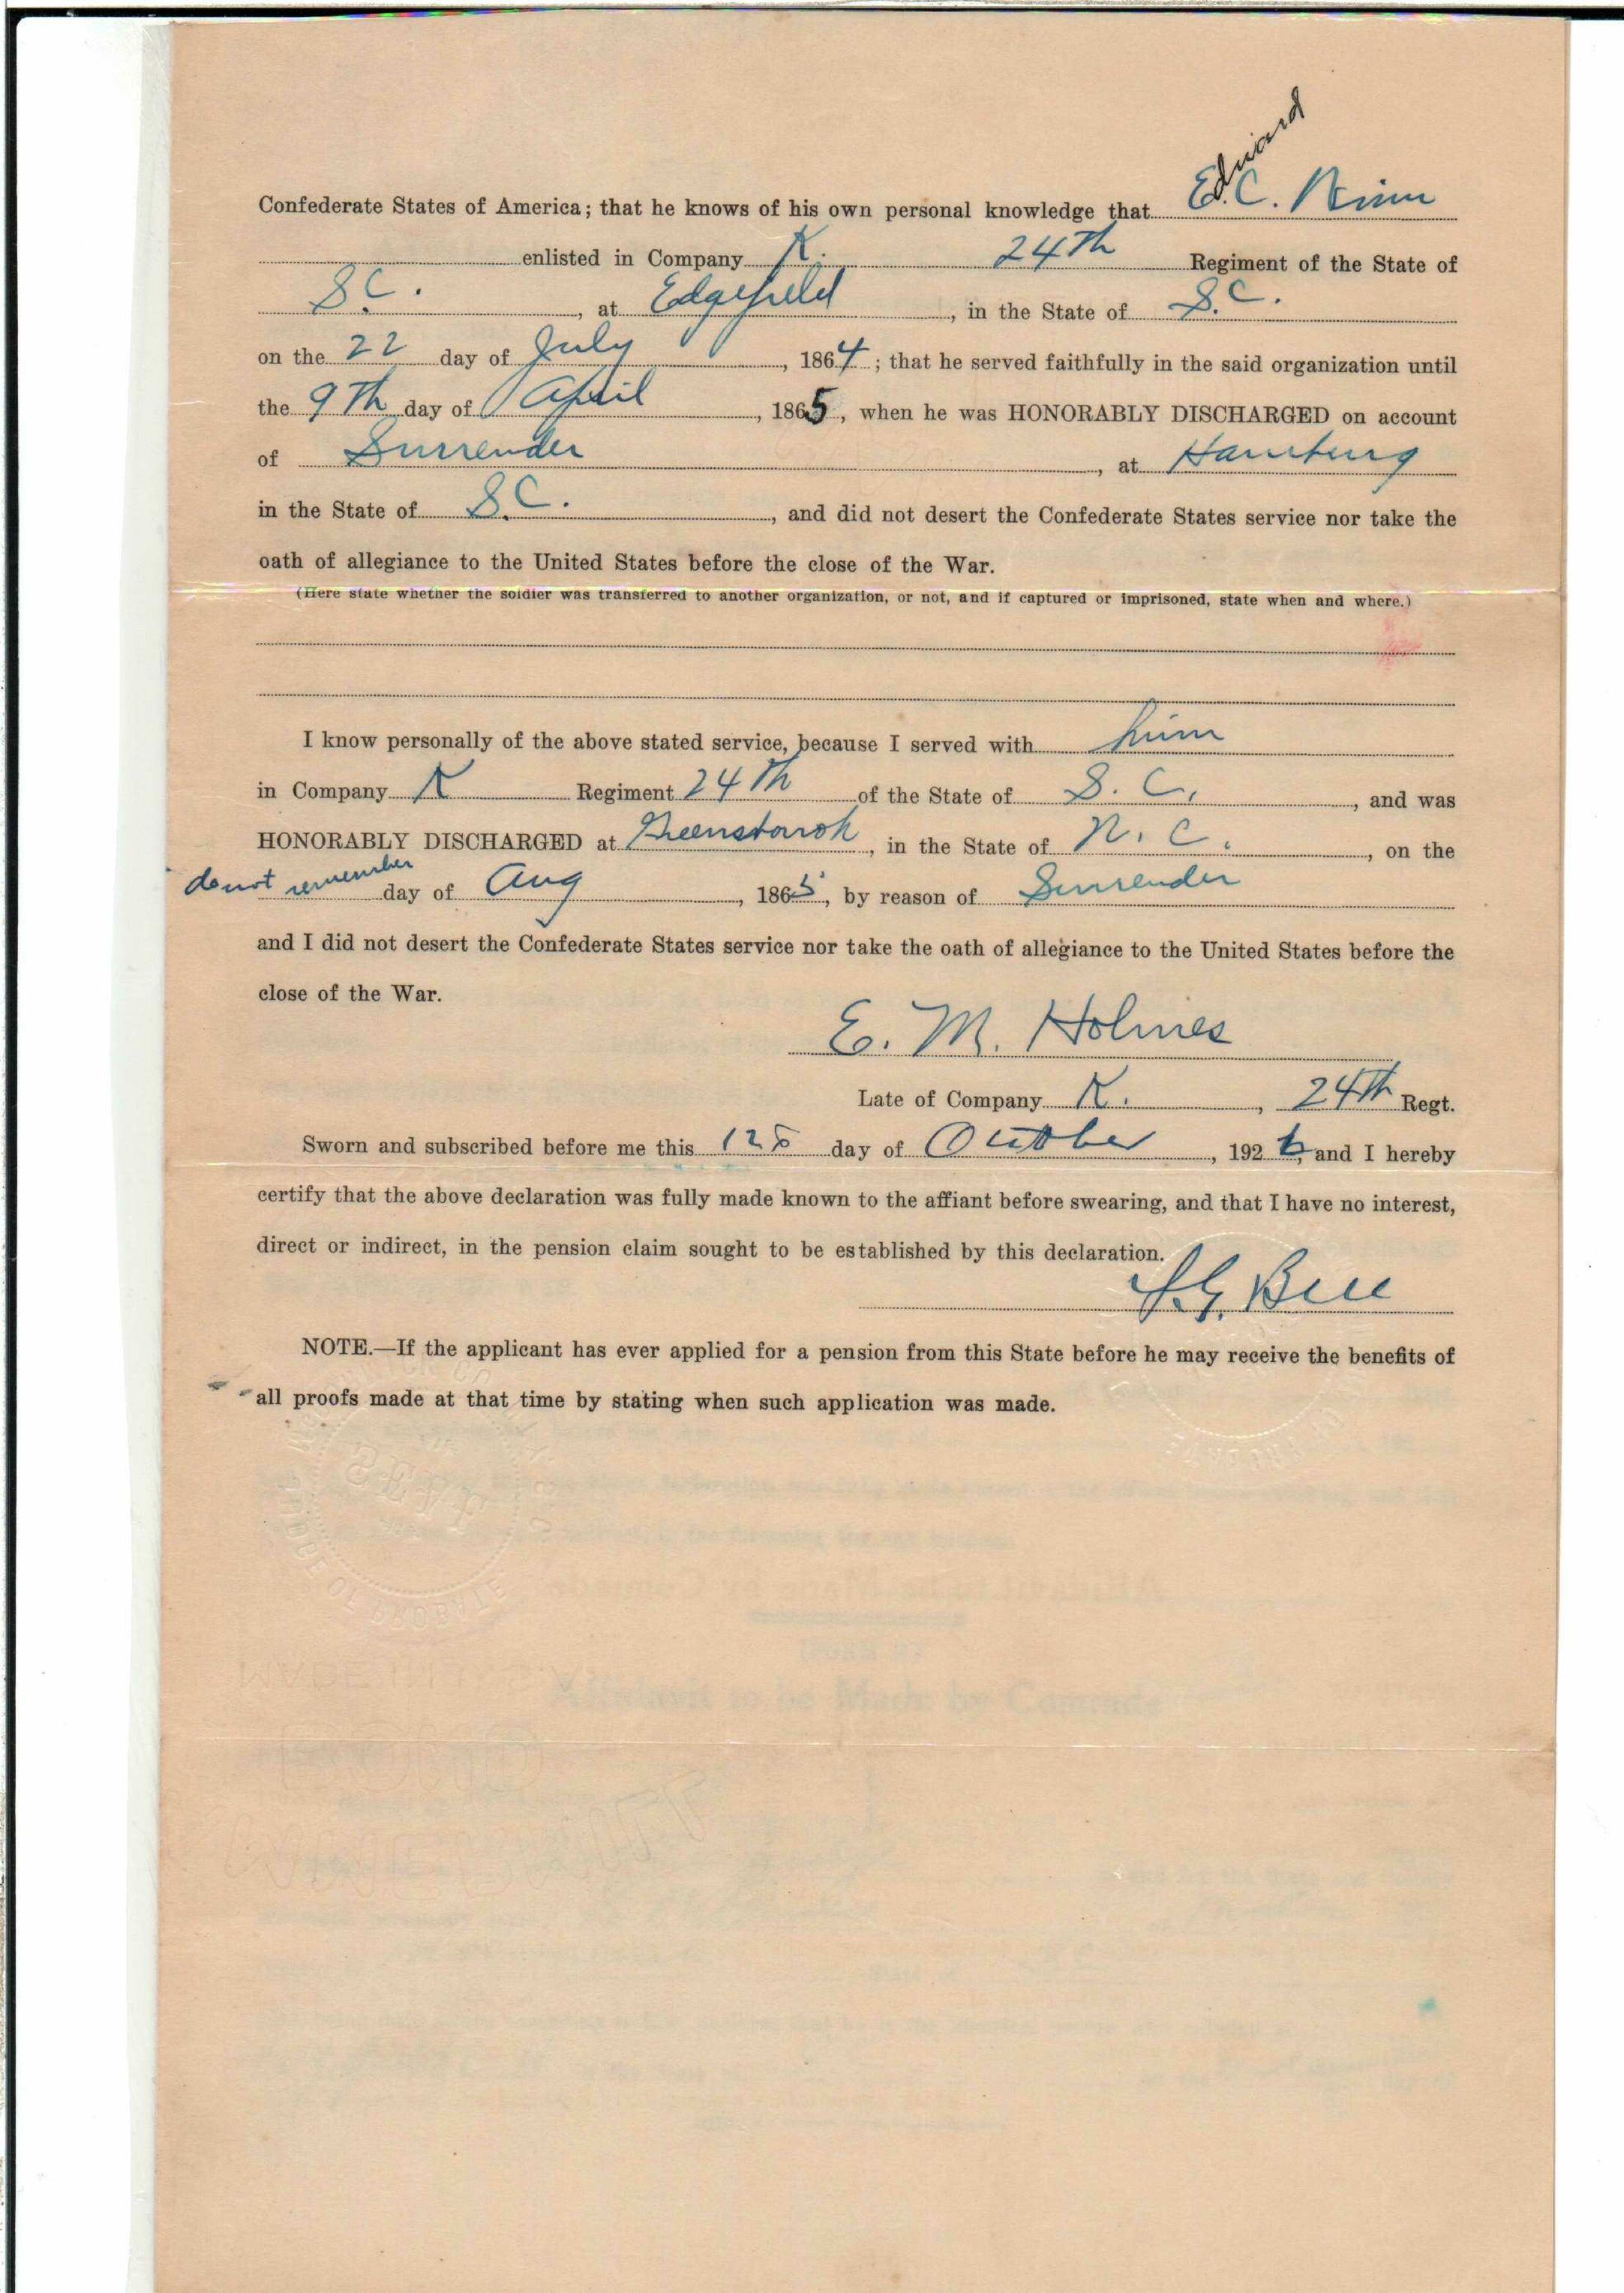 Edward
Confederate States of America; that he knows of his own personal knowledge that E. C.
enlisted in Company K. 24Th Regiment of the State of
S.C. , at Edgefield , in the State of S.C.
on the 22 day of July , 1864 ; that he served faithfully in the said organization until
the 9Th day of April , 1865 , when he was HONORABLY DISCHARGED on account
of Surrender , at Hamburg
in the State of S.C. , and did not desert the Confederate States service nor take the
oath of allegiance to the United States before the close of the War.
(Here state whether the soldier was transferred to another organization, or not, and if captured or imprisoned, state when and where.)
I know personally of the above stated service, because I served with him
in Company K Regiment 24Th of the State of S. C. , and was
HONORABLY DISCHARGED at , in the State of N. C. , on the
do not remember day of Aug , 1865 , by reason of Surrender
and I did not desert the Confederate States service nor take the oath of allegiance to the United States before the
close of the War.
E. M. Holmes
Late of Company K. , 24Th Regt.
Sworn and subscribed before me this day of October , 192 and I hereby
certify that the above declaration was fully made known to the affiant before swearing, and that I have no interest,
direct or indirect, in the pension claim sought to be established by this declaration.
NOTE.—If the applicant has ever applied for a pension from this State before he may receive the benefits of
all proofs made at that time by stating when such application was made.